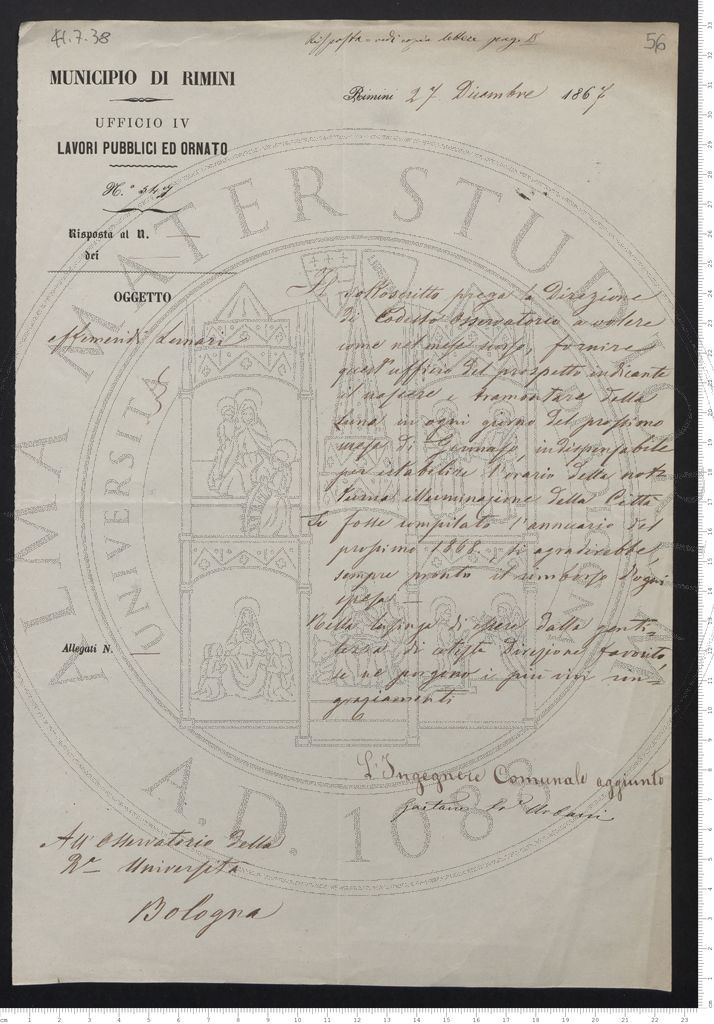 41.7.38
Risposta = vedi copia lettere pag. 15
56
MUNICIPIO DI RIMINI
Rimini 27 Dicembre 1867
UFFICIO IV
LAVORI PUBBLICI ED ORNATO
N.° 347
Risposta al N.
dei
OGGETTO
effemeridi Lunari
Il sottoscritto prega la Direzione
di Codesto Osservatorio a volere
come nel mese scorso, fornire
quest'ufficio del prospetto indicante
il nascere, e tramontare della
Luna in ogni giorno del prossimo
mese di Gennajo, indispensabile
per istabilire l'orario della not=
turna illuminazione della Città
Se fosse compilato l'annuario del
prossimo 1868, si agradirebbe,
sempre pronto il rimborso d'ogni
spesa. —
Nella lusinga di essere dalla genti=
lezza di cotesta Direzione favorito,
le ne porgono i più vivi rin=
graziamenti
Allegati N.
L'Ingegnere Comunale aggiunto
Gaetano Urbani
All'Osservatorio della
R.a Università
Bologna
ALMA MATER STUDIORUM
UNIVERSITÀ
A.D. 1088